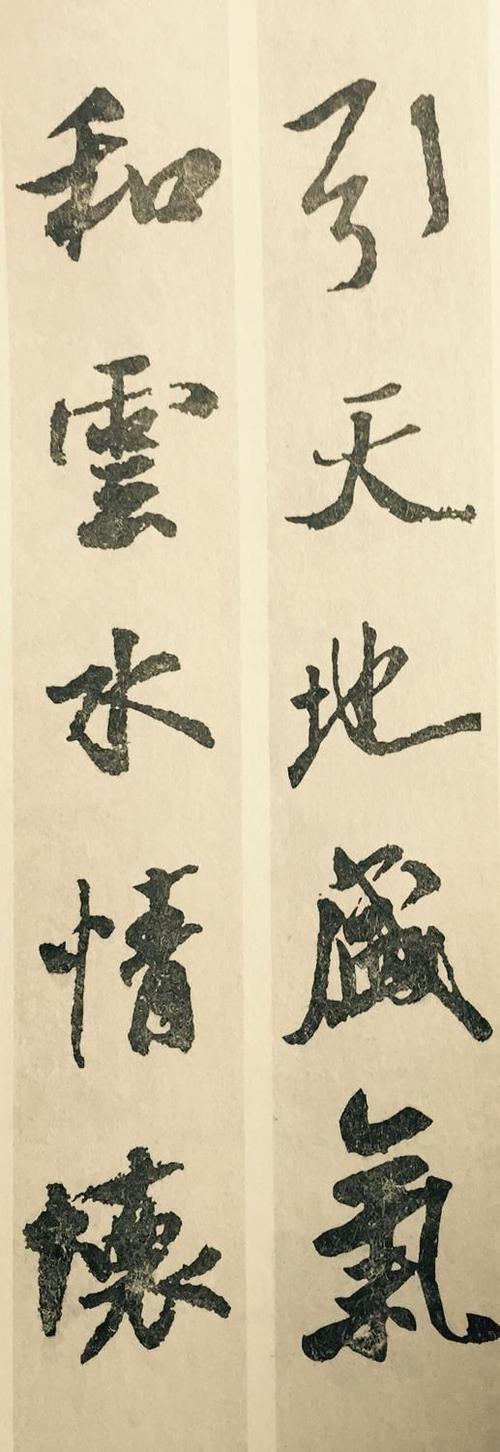 引天地盛氣
和雲水情懷